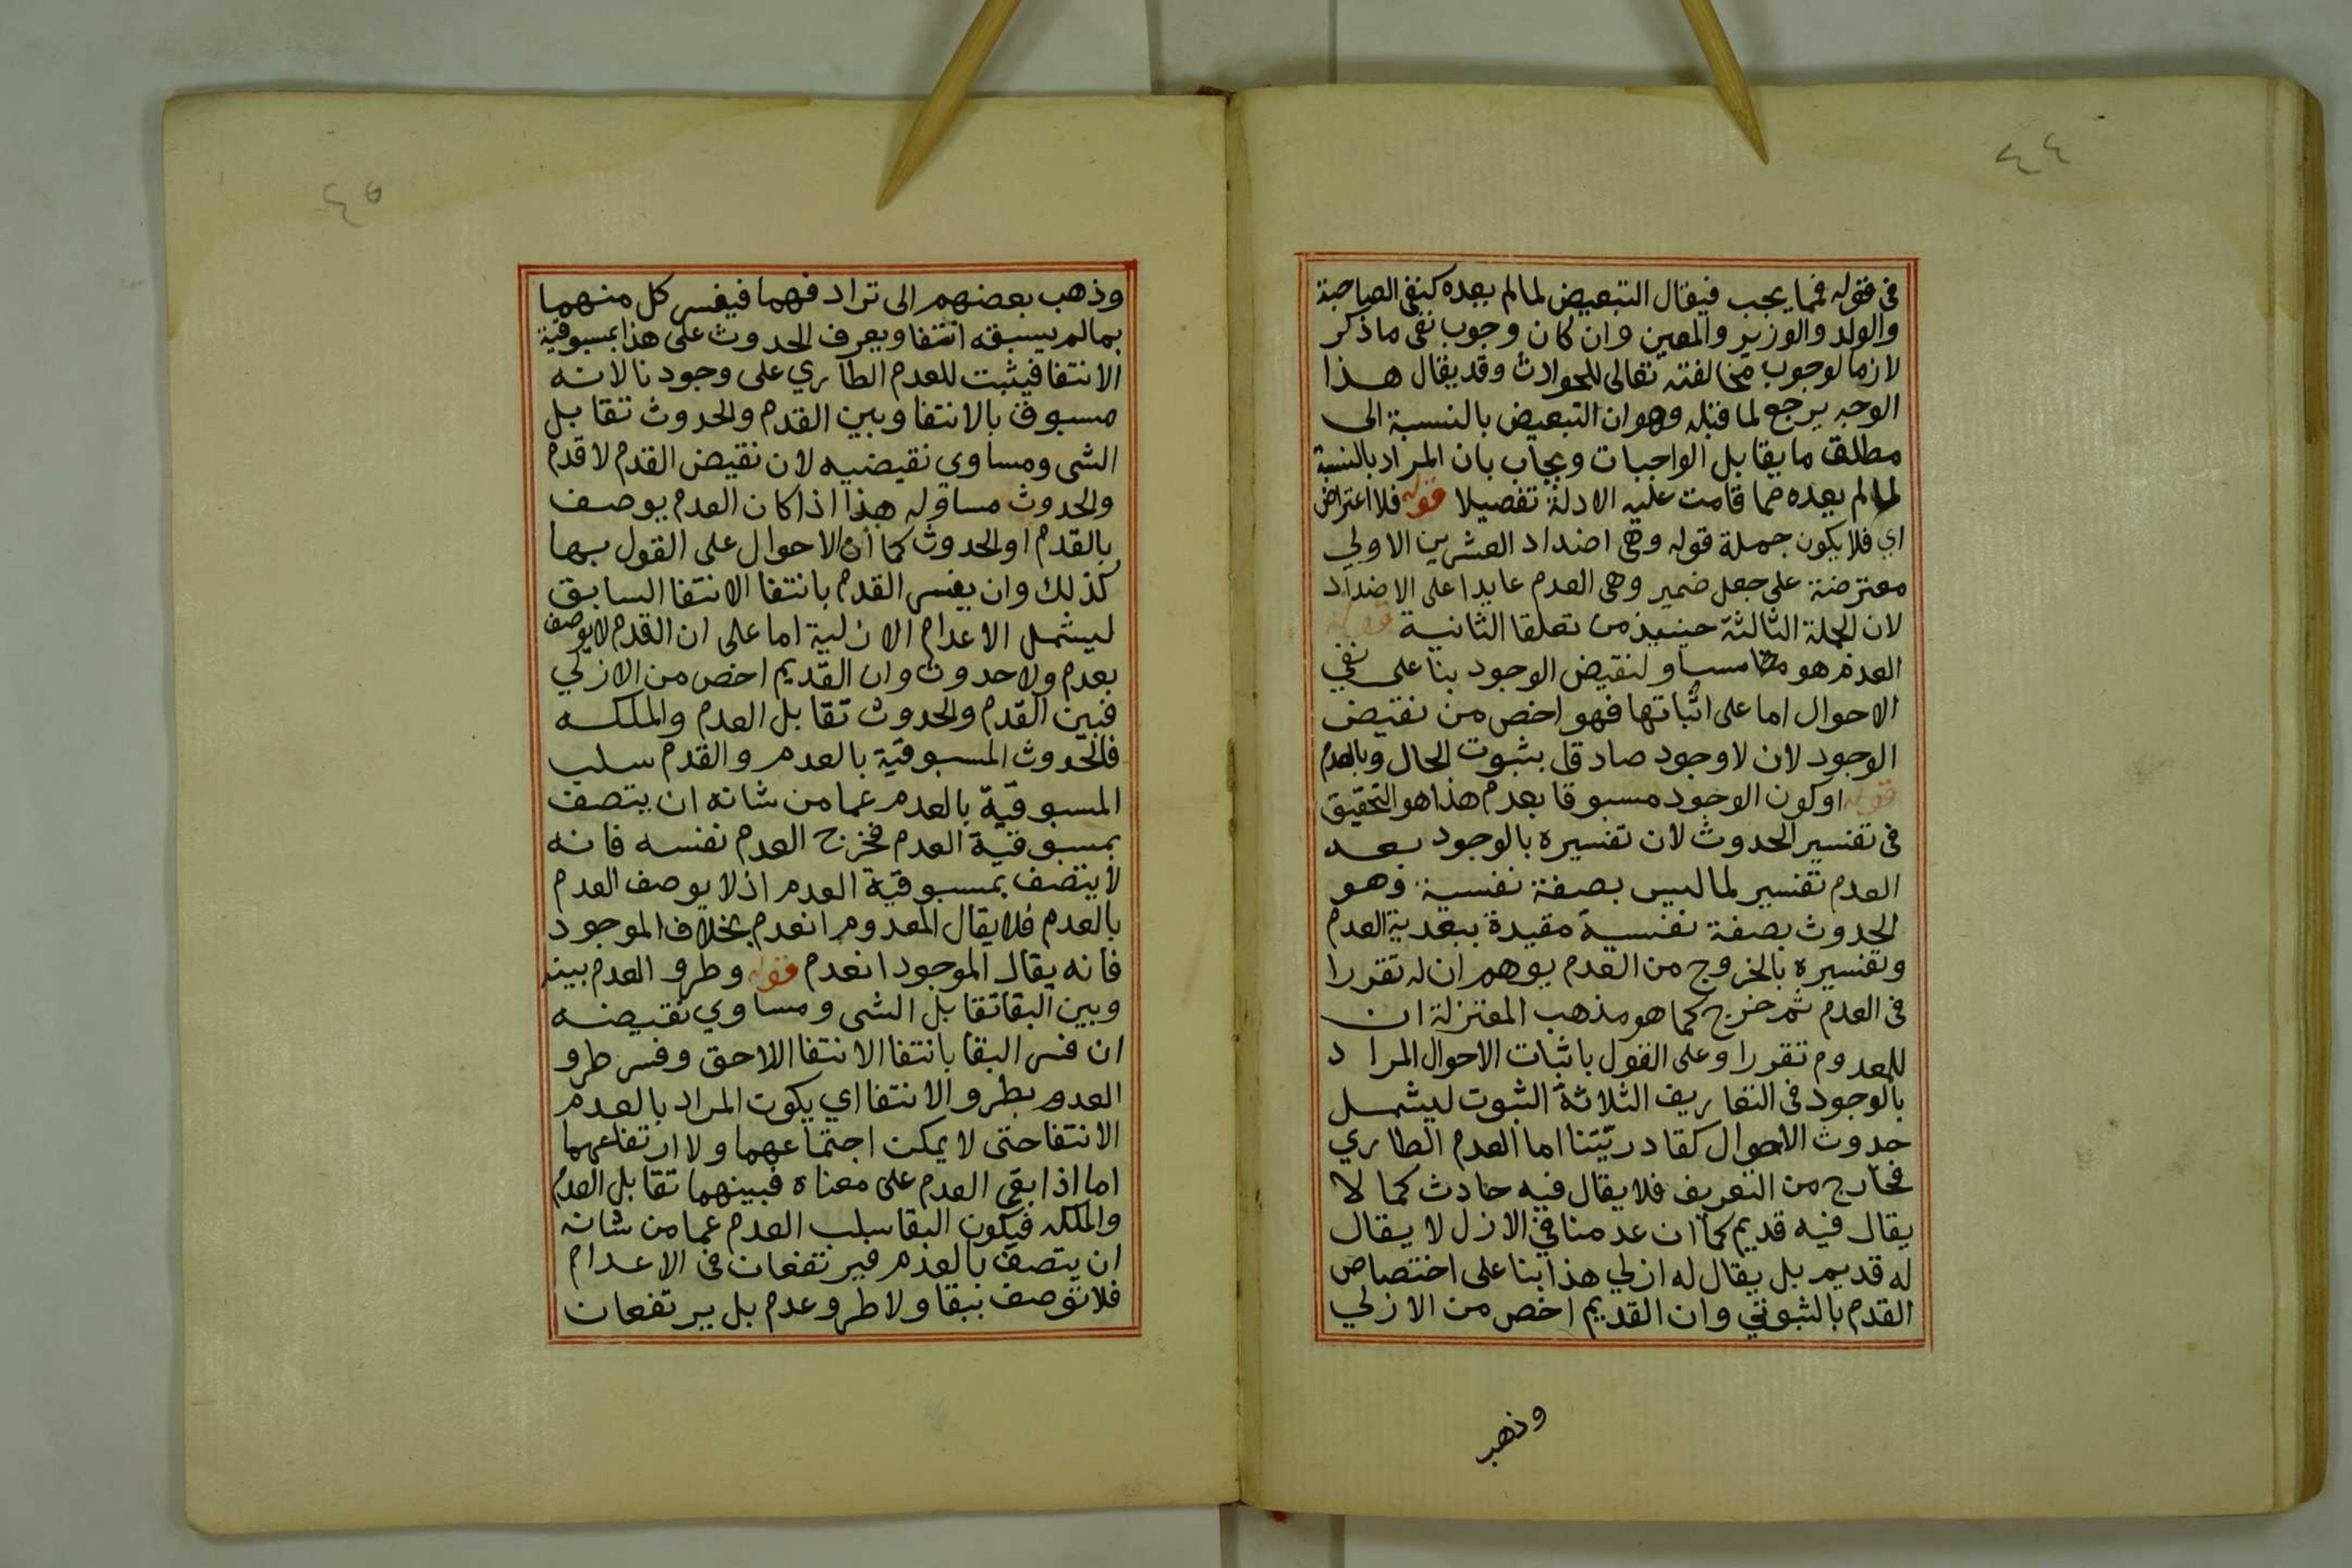 ٤٤
في قوله فما يجب فيقال التبعيض لما لم يعده كنفي الصاحبة
والولد والوزير والمعين وان كان وجوب نفي ما ذكر
لازما لوجوب مخالفته تعالى للحوادث وقد يقال هذا
الوجه يرجع لما قبله وهو ان التبعيض بالنسبة الى
مطلق ما يقابل الواجبات ويجاب بان المراد بالنسبة
لما لم يعده مما قامت عليه الادلة تفصيلا قوله فلا اعتراض
اي فلا يكون جملة قوله وهي اضداد العشرين الاولي
معترضة على جعل ضمير وهي العدم عايدا على الاضداد
لان الجملة الثالثة حينيذ من تعلقا الثانية قوله
العدم هو مساو لنقيض الوجود بنا على نفي
الاحوال اما على اثباتها فهو اخص من نقيض
الوجود لان لا وجود صادق بثبوت الحال وبالعدم
قوله او كون الوجود مسبوقا بعدم هذا هو التحقيق
في تفسير الحدوث لان تفسيره بالوجود بعد
العدم تفسير لما ليس بصفة نفسية وهو
الحدوث بصفة نفسية مقيدة ببعدية العدم
وتفسيره بالخروج من العدم يوهم ان له تقررا
في العدم ثم خرج كما هو مذهب المعتزلة ان
للمعدوم تقررا وعلى القول باثبات الاحوال المراد
بالوجود في التعاريف الثلاثة الثبوت ليشمل
حدوث الاحوال كقادريتنا اما العدم الطاري
فخارج من التعريف فلا يقال فيه حادث كما لا
يقال فيه قديم كما ان عدمنا في الازل لا يقال
له قديم بل يقال له ازلي هذا بنا على اختصاص
القدم بالثبوتي وان القديم اخص من الازلي
وذهب
٤٥
وذهب بعضهم الى ترادفهما فيفسر كل منهما
بما لم يسبقه انتفا ويعرف الحدوث على هذا بمسبوقية
الانتفا فيثبت للعدم الطاري على وجودنا لانه
مسبوق بالانتفا وبين القدم والحدوث تقابل
الشي ومساوي نقيضيه لان نقيض القدم لا قدم
والحدوث مساو له هذا اذا كان العدم يوصف
بالقدم او الحدوث كما ان الاحوال على القول بها
كذلك وان يفسر القدم بانتفا الانتفا السابق
ليشمل الاعدام الازلية اما على ان القدم لا يوصف
بعدم ولا حدوث وان القديم اخص من الازلي
فبين القدم والحدوث تقابل العدم والملكه
فالحدوث المسبوقية بالعدم والقدم سلب
المسبوقية بالعدم عما من شانه ان يتصف
بمسبوقية العدم فخرج العدم نفسه فانه
لا يتصف بمسبوقية العدم اذ لا يوصف العدم
بالعدم فلا يقال المعدوم انعدم بخلاف الموجود
فانه يقال الموجود انعدم قوله وطرو العدم بينه
وبين البقا تقابل الشي ومساوي نقيضه
ان فسر البقا بانتفا الانتفا اللاحق وفسر طرو
العدم بطرو الانتفا اي يكون المراد بالعدم
الانتفا حتى لا يمكن اجتماعهما ولا ارتفاعهما
اما اذا بقي العدم على معناه فبينهما تقابل العدم
والملكه فيكون البقا سلب العدم عما من شانه
ان يتصف بالعدم فيرتفعان في الاعدام
فلا توصف ببقا ولا طرو عدم بل يرتفعان